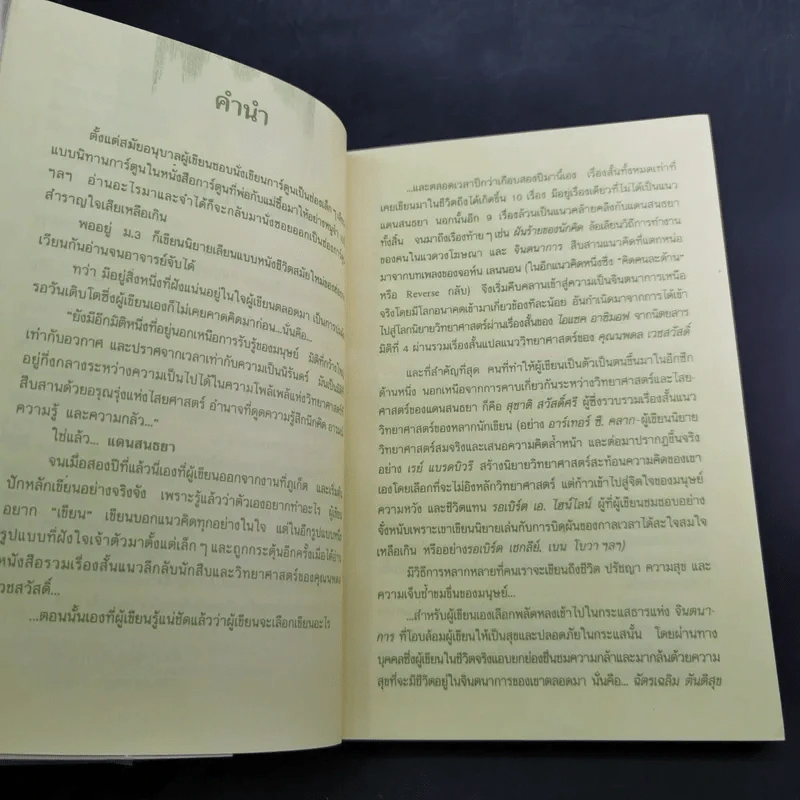 คำนำ
ตั้งแต่สมัยอนุบาลผู้เขียนชอบนั่งเขียนการ์ตูนเป็นช่องเล็กๆ
แบบนิทานการ์ตูนในหนังสือการ์ตูนที่พ่อกับแม่ซื้อมาให้อย่างหนูจ๋า
ฯลฯ อ่านอะไรมาและจำได้ก็จะกลับมานั่งซอยออกเป็นช่องการ์ตูน
สำราญใจเสียเหลือเกิน
พออยู่ ม.3 ก็เขียนนิยายเลียนแบบหนังชีวิตสมัยใหม่ของ
เวียนกันอ่านจนอาจารย์จับได้
ทว่า มีอยู่สิ่งหนึ่งที่ฝังแน่นอยู่ในใจผู้เขียนตลอดมา เป็นการ
รอวันเติบโตซึ่งผู้เขียนเองก็ไม่เคยคาดคิดมาก่อน...นั่นคือ...
"ยังมีอีกมิติหนึ่งที่อยู่นอกเหนือการรับรู้ของมนุษย์ มิติที่กว้าง
เท่ากับอวกาศ และปราศจากเวลาเท่ากับความเป็นนิรันดร์ มันเป็น
อยู่กึ่งกลางระหว่างความเป็นไปได้ในความโพล้เพล้แห่งวิทยาศาสตร์
สืบสานด้วยอรุณรุ่งแห่งไสยศาสตร์ อำนาจที่ดูดความรู้สึกนึกคิด
ความรู้ และความกลัว..."
ใช่แล้ว... แดนสนธยา
จนเมื่อสองปีที่แล้วนี่เองที่ผู้เขียนออกจากงานที่ภูเก็ต และเริ่ม
ปักหลักเขียนอย่างจริงจัง เพราะรู้แล้วว่าตัวเองอยากทำอะไร ผู้เขียน
อยาก "เขียน" เขียนบอกแนวคิดทุกอย่างในใจ แต่ในอีกรูปแบบหนึ่ง
รูปแบบที่ฝังใจเจ้าตัวมาตั้งแต่เล็กๆ และถูกกระตุ้นอีกครั้งเมื่อได้อ่าน
หนังสือรวมเรื่องสั้นแนวลึกลับนักสืบและวิทยาศาสตร์ของคุณนพดล
เวชสวัสดิ์...
...ตอนนั้นเองที่ผู้เขียนรู้แน่ชัดแล้วว่าผู้เขียนจะเลือกเขียนอะไร
...และตลอดเวลาปีกว่าเกือบสองปีมานี้เอง เรื่องสั้นทั้งหมดเท่าที่
เคยเขียนมาในชีวิตถึงได้เกิดขึ้น 10 เรื่อง มีอยู่เรื่องเดียวที่ไม่ได้เป็นแนว
แดนสนธยา นอกนั้นอีก 9 เรื่องล้วนเป็นแนวคล้ายคลึงกับแดนสนธยา
ทั้งสิ้น จนมาถึงเรื่องท้ายๆ เช่น ฝันร้ายของนักคิด ล้อเลียนวิธีการทำงาน
ของคนในแวดวงโฆษณา และ จินตนาการ สืบสานแนวคิดที่แตกหน่อ
มาจากบทเพลงของจอห์น เลนนอน (ในอีกแนวคิดหนึ่งซึ่ง "คิดคนละด้าน"
หรือ Reverse กลับ) จึงเริ่มคืบคลานเข้าสู่ความเป็นจินตนาการเหนือ
จริงโดยมีโลกอนาคตเข้ามาเกี่ยวข้องทีละน้อย อันกำเนิดมาจากการได้เข้า
ไปสู่โลกนิยายวิทยาศาสตร์ผ่านเรื่องสั้นของ ไอแซค อาซิมอฟ จากนิตยสาร
มิติที่ 4 ผ่านรวมเรื่องสั้นแปลแนววิทยาศาสตร์ของ คุณนพดล เวชสวัสดิ์
และที่สำคัญที่สุด คนที่ทำให้ผู้เขียนเป็นตัวเป็นตนขึ้นมาในอีกซีก
ด้านหนึ่ง นอกเหนือจากการคาบเกี่ยวกันระหว่างวิทยาศาสตร์และไสย-
ศาสตร์ของแดนสนธยา ก็คือ สุชาติ สวัสดิ์ศรี ผู้ซึ่งรวบรวมเรื่องสั้นแนว
วิทยาศาสตร์ของหลากนักเขียน (อย่าง อาร์เทอร์ ซี. คลาก-ผู้เขียนนิยาย
วิทยาศาสตร์สมจริงและเสนอความคิดล้ำหน้า และต่อมาปรากฏขึ้นจริง
อย่าง เรย์ แบรดบิวรี สร้างนิยายวิทยาศาสตร์สะท้อนความคิดของเขา
เองโดยเลือกที่จะไม่อิงหลักวิทยาศาสตร์ แต่ก้าวเข้าไปสู่จิตใจของมนุษย์
ความหวัง และชีวิตแทน รอเบิร์ต เอ. ไฮน์ไลน์ ผู้ที่ผู้เขียนชมชอบอย่าง
จังหนับเพราะเขาเขียนนิยายเล่นกับการบิดผันของกาลเวลาได้สะใจสมใจ
เหลือเกิน หรืออย่างรอเบิร์ต เชกลีย์, เบน โบวา ฯลฯ)
มีวิธีการหลากหลายที่คนเราจะเขียนถึงชีวิต ปรัชญา ความสุข และ
ความเจ็บช้ำขมขื่นของมนุษย์...
...สำหรับผู้เขียนเองเลือกพลัดหลงเข้าไปในกระแสธารแห่ง จินตนา-
การ ที่โอบล้อมผู้เขียนให้เป็นสุขและปลอดภัยในกระแสนั้น โดยผ่านทาง
บุคคลซึ่งผู้เขียนในชีวิตจริงแอบยกย่องชื่นชมความกล้าและมากล้นด้วยความ
สุขที่จะมีชีวิตอยู่ในจินตนาการของเขาตลอดมา นั่นคือ... ฉัตรเฉลิม ตันติสุข